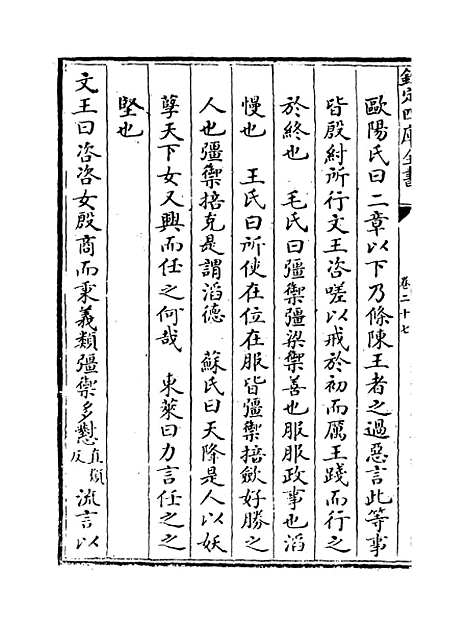 欽定四庫全書
卷二十七
歐陽氏曰二章以下乃條陳王者之過惡言此等事
皆殷紂所行文王咨嗟以戒於初而厲王踐而行之
於終也　毛氏曰彊禦彊梁禦善也服服政事也滔
慢也　王氏曰所使在位在服皆彊禦掊斂好勝之
人也彊禦掊克是謂滔德　蘇氏曰天降是人以妖
孽天下女又興而任之何哉　東萊曰力言任之之
堅也
文王曰咨咨女殷商而秉義類彊禦多懟直類反流言以